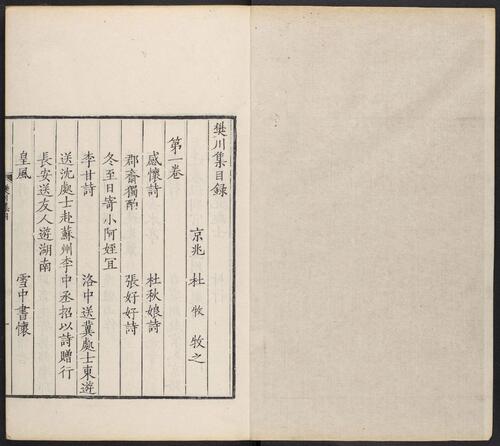 樊川集目録
京兆 杜 牧 牧之
第一卷
感懷詩 杜秋娘詩
郡齋獨酌 張好好詩
冬至日寄小阿姪宜
李甘詩 洛中送冀處士東遊
送沈處士赴蘇州李中丞招以詩贈行
長安送友人遊湖南
皇風 雪中書懷